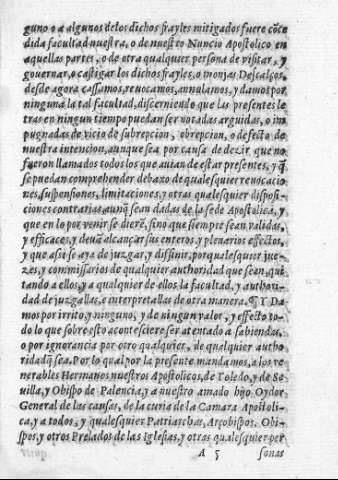 guno o a algunos de los dichos frayles mitigados fuere cõce
dida facultad nuestra, o de nuestro Nuncio Apostolico en
aquellas partes, o de otra qualquier persona de visitar, y
gouernar, o castigar los dichos frayles, o monjas Descalços,
desde agora cassamos, reuocamos, annulamos, y damos por
ninguna la tal facultad, discerniendo que las presentes le
tras en ningun tiempo puedan ser notadas arguidas, o im
pugnadas de vicio de subrepcion, obrepcion, o defecto de
nuestra intencion, aunque sea por causa de dezir que no
fueron llamados todos los que auian de estar presentes, y q̃
se puedan comprehender debaxo de qualesquier reuocacio
nes, suspensiones, limitaciones, y otras qualesquier disposi-
ciones contrarias, aunq̃ sean dadas de la sede Apostolica, y
que en lo por venir se dierẽ, sino que siempre sean validas,
y efficaces, y deuã alcançar sus enteros, y plenarios effectos,
y que assi se aya de juzgar, y diffinir, por qualesquier jue-
zes, y commissarios de qualquier authoridad que sean, qui
tando a ellos, y a qualquier de ellos la facultad, y authori-
dad de juzgallas, e interpretallas de otra manera. ¶ Y Da
mos por irrito, y ninguno, y de ningun valor, y effecto to-
do lo que sobre esto aconteciere ser atentado a sabiendas,
o por ignorancia por otro qualquier, de qualquier autho
ridadq̃ sea. Por lo qual por la presente mandamos, a los ve
nerables Hermanos nuestros Apostolicos, de Toledo, y de Se
uilla, y Obispo de Palencia, y a nuestro amado hijo Oydor
General de las causas, de la curia de la Camara Apostoli-
ca, y a todos, y qualesquier Patriarchas, Arçobispos, Obi-
spos, y otros Prelados de las Iglesias, y otras qualesquier per
A 5 sonas